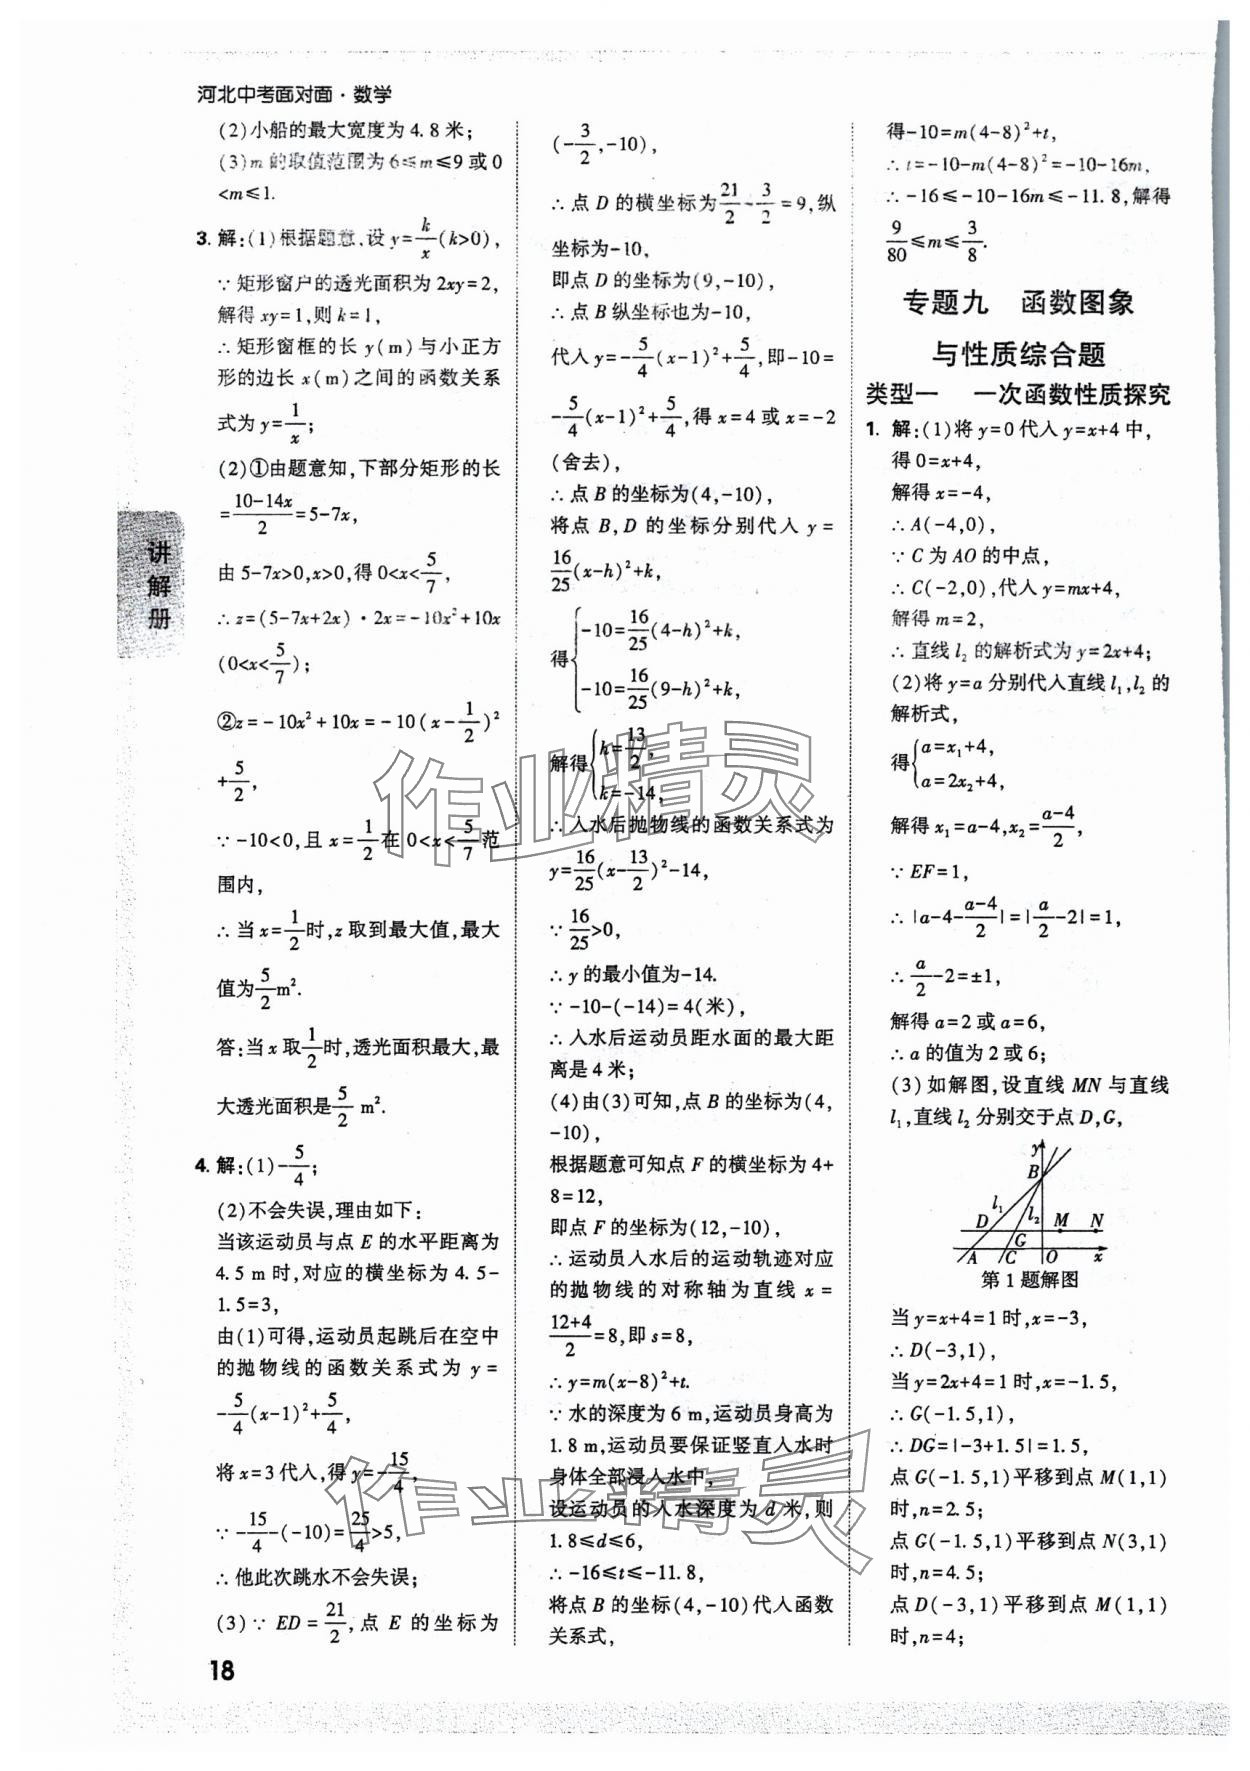 河北中考面对面·数学
(2)小船的最大宽度为4.8米;
(3)m的取值范围为6≤m≤9或0
<m≤1.
3. 解:(1)根据题意,设y=k/x(k>0),
∵矩形窗户的透光面积为2xy=2,
解得xy=1,则k=1,
∴矩形窗框的长y(m)与小正方
形的边长x(m)之间的函数关系
式为y=1/x;
(2)①由题意知,下部分矩形的长
=(10-14x)/2=5-7x,
由5-7x>0,x>0,得0<x<5/7,
∴z=(5-7x+2x)·2x=-10x²+10x
(0<x<5/7);
②z=-10x²+10x=-10(x-1/2)²
+5/2,
∵-10<0,且x=1/2在0<x<5/7范
围内,
∴当x=1/2时,z取到最大值,最大
值为5/2m².
答:当x取1/2时,透光面积最大,最
大透光面积是5/2 m².
4. 解:(1)-5/4;
(2)不会失误,理由如下:
当该运动员与点E的水平距离为
4.5 m时,对应的横坐标为4.5-
1.5=3,
由(1)可得,运动员起跳后在空中
的抛物线的函数关系式为y=
-5/4(x-1)²+5/4,
将x=3代入,得y=-15/4,
∵-15/4-(-10)=25/4>5,
∴他此次跳水不会失误;
(3)∵ED=21/2,点E的坐标为
18
(-3/2,-10),
∴点D的横坐标为21/2-3/2=9,纵
坐标为-10,
即点D的坐标为(9,-10),
∴点B纵坐标也为-10,
代入y=-5/4(x-1)²+5/4,即-10=
-5/4(x-1)²+5/4,得x=4或x=-2
(舍去),
∴点B的坐标为(4,-10),
将点B,D的坐标分别代入y=
16/25(x-h)²+k,
得{-10=16/25(4-h)²+k,
-10=16/25(9-h)²+k,
解得{h=13/2,
k=-14,
∴入水后抛物线的函数关系式为
y=16/25(x-13/2)²-14,
∵16/25>0,
∴y的最小值为-14.
∵-10-(-14)=4(米),
∴入水后运动员距水面的最大距
离是4米;
(4)由(3)可知,点B的坐标为(4,
-10),
根据题意可知点F的横坐标为4+
8=12,
即点F的坐标为(12,-10),
∴运动员入水后的运动轨迹对应
的抛物线的对称轴为直线x=
(12+4)/2=8,即s=8,
∴y=m(x-8)²+t.
∵水的深度为6 m,运动员身高为
1.8 m,运动员要保证竖直入水时
身体全部浸入水中,
设运动员的入水深度为d米,则
1.8≤d≤6,
∴-16≤t≤-11.8,
将点B的坐标(4,-10)代入函数
关系式,
得-10=m(4-8)²+t,
∴t=-10-m(4-8)²=-10-16m,
∴-16≤-10-16m≤-11.8,解得
9/80≤m≤3/8.
专题九 函数图象
与性质综合题
类型一 一次函数性质探究
1. 解:(1)将y=0代入y=x+4中,
得0=x+4,
解得x=-4,
∴A(-4,0),
∵C为AO的中点,
∴C(-2,0),代入y=mx+4,
解得m=2,
∴直线l₂的解析式为y=2x+4;
(2)将y=a分别代入直线l₁,l₂的
解析式,
得{a=x₁+4,
a=2x₂+4,
解得x₁=a-4,x₂=(a-4)/2,
∵EF=1,
∴|a-4-(a-4)/2|=|a/2-2|=1,
∴a/2-2=±1,
解得a=2或a=6,
∴a的值为2或6;
(3)如解图,设直线MN与直线
l₁,直线l₂分别交于点D,G,
y
B
l₁
D
l₂
M
N
G
A
C
O
x
第1题解图
当y=x+4=1时,x=-3,
∴D(-3,1),
当y=2x+4=1时,x=-1.5,
∴G(-1.5,1),
∴DG=|-3+1.5|=1.5,
点G(-1.5,1)平移到点M(1,1)
时,n=2.5;
点G(-1.5,1)平移到点N(3,1)
时,n=4.5;
点D(-3,1)平移到点M(1,1)
时,n=4;
讲解册
作业精灵
作业精灵